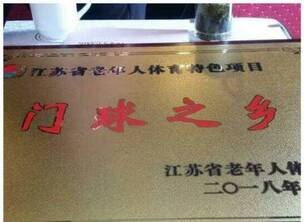 江苏省老年人体育特色项目
门球之乡
江苏省老年人体
二〇一八年